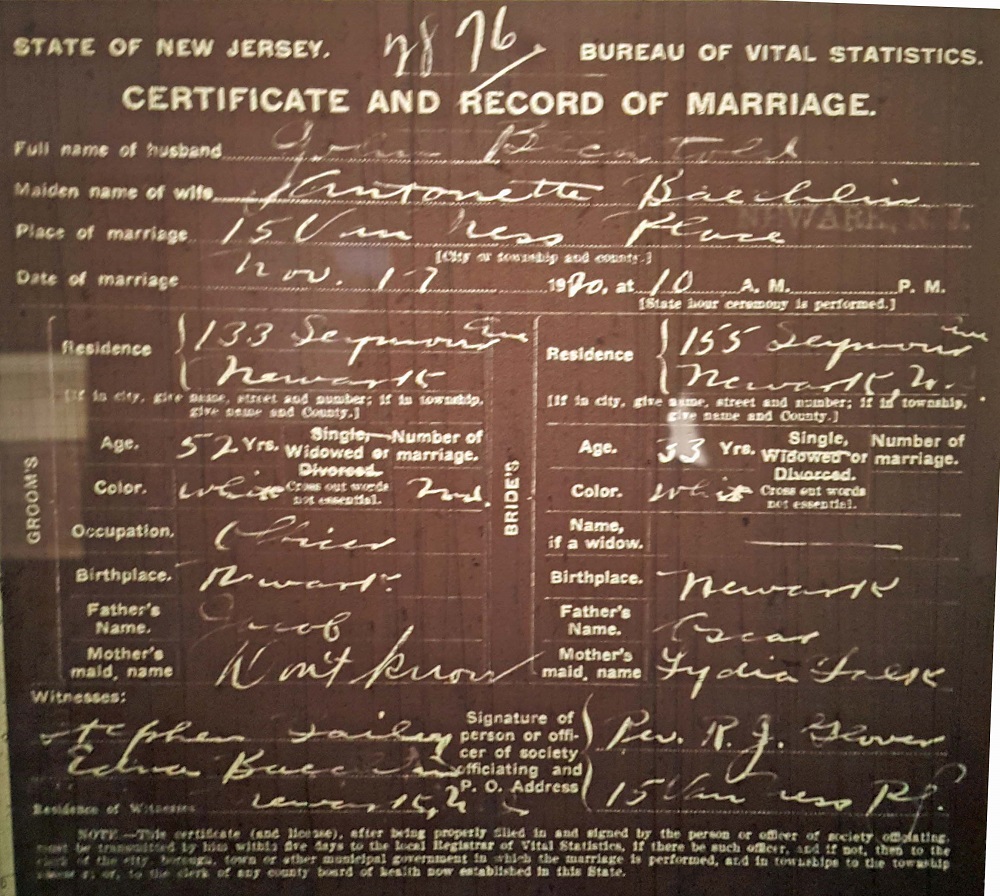 STATE OF NEW JERSEY. 7876. BUREAU OF VITAL STATISTICS.
CERTIFICATE AND RECORD OF MARRIAGE.
Full name of husband John
Maiden name of wife Antonette Baechlin
NEWARK, N. J.
Place of marriage 15 Van Ness Place
[City or township and county.]
Date of marriage Nov. 17 1920, at 10 A. M. P. M.
[State hour ceremony is performed.]
GROOM'S
Residence 133 Seymour Ave
Newark
[If in city, give name, street and number; if in township, give name and County.]
Age. 52 Yrs. Single, Widowed or Divorced. Number of marriage.
Color. White Cross out words not essential. 2nd.
Occupation.
Birthplace. Newark.
Father's Name. Jacob
Mother's maid, name Don't know
BRIDE'S
Residence 155 Seymour Ave
Newark, N.J.
[If in city, give name, street and number; if in township, give name and County.]
Age. 33 Yrs. Single, Widowed or Divorced. Number of marriage.
Color. White Cross out words not essential.
Name, if a widow.
Birthplace. Newark
Father's Name. Oscar
Mother's maid, name Lydia Falk
Witnesses:
Stephen
Edna Baechlin
Residence of Witnesses Newark, N J
Signature of person or officer of society officiating and P. O. Address
Rev. R. J. Glover
15 Van Ness Pl.
NOTE.—This certificate (and license), after being properly filled in and signed by the person or officer of society officiating,
must be transmitted by him within five days to the local Registrar of Vital Statistics, if there be such officer, and if not, then to the
clerk of the city, borough, town or other municipal government in which the marriage is performed, and in townships to the township
or, to the clerk of any county board of health now established in this State.